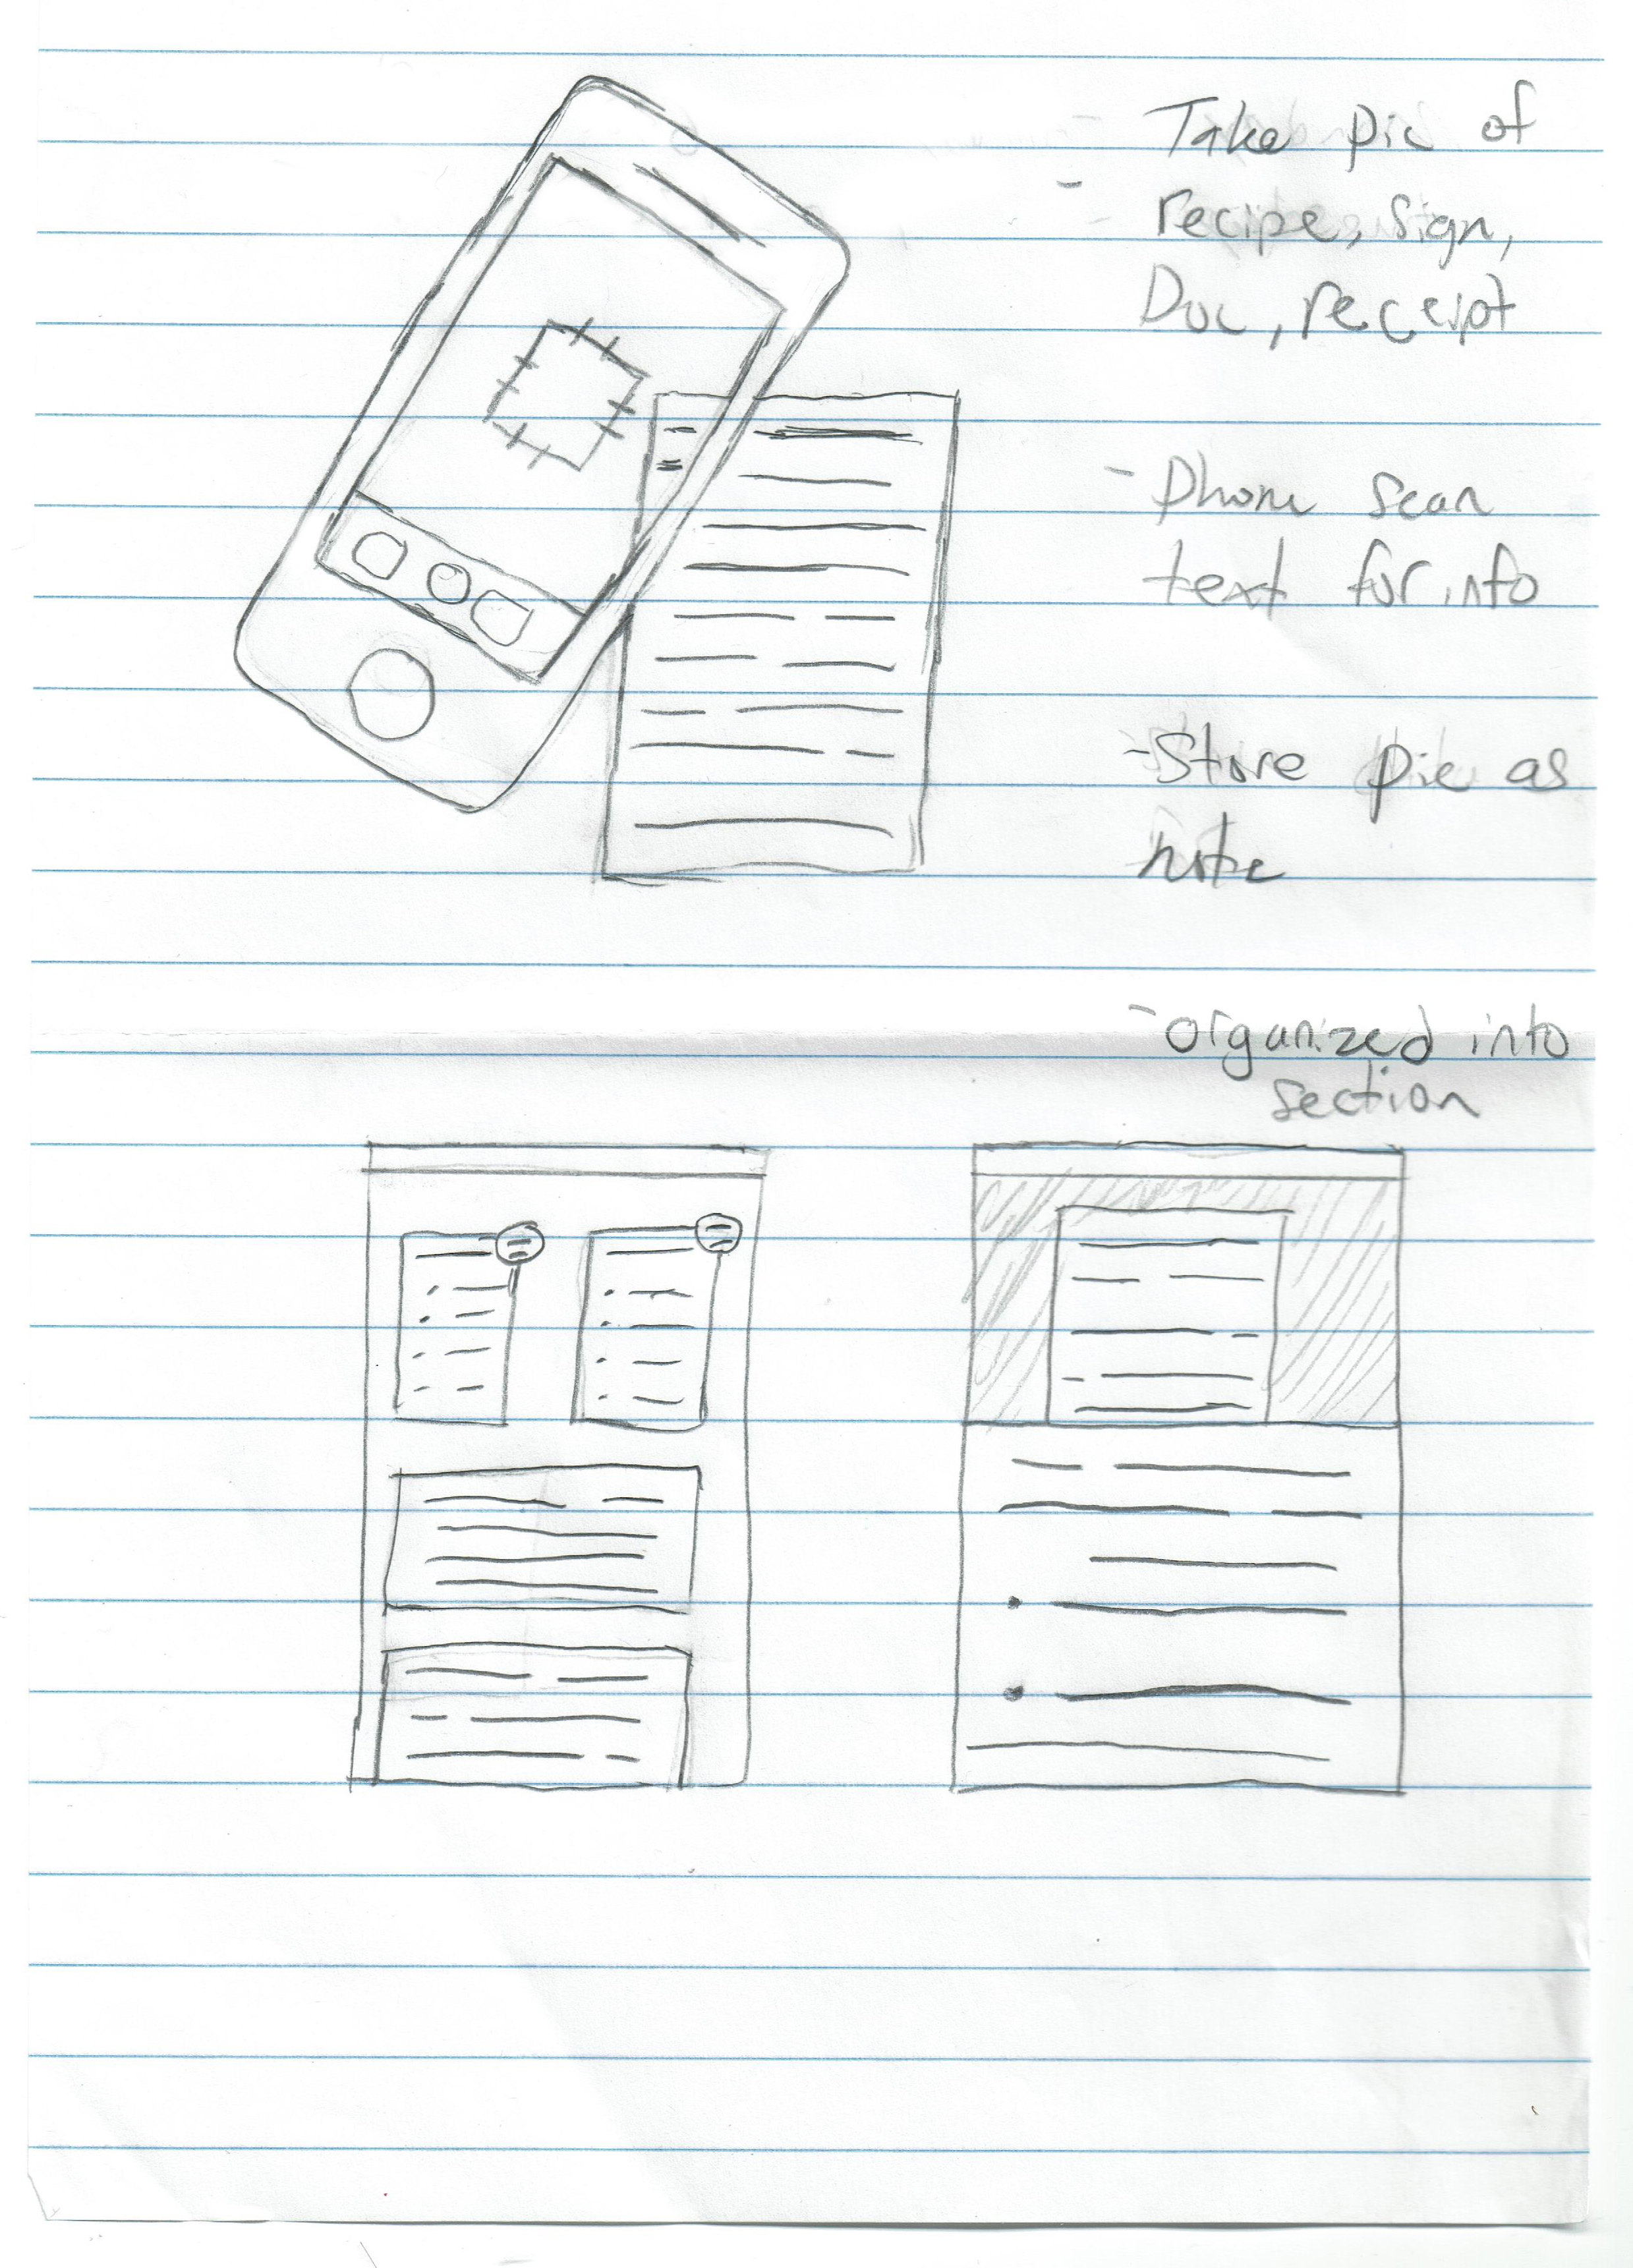 - Take pic of
recipe, sign,
Doc, receipt
- Phone scan
text for info
- Store pic as
note
- organized into
section